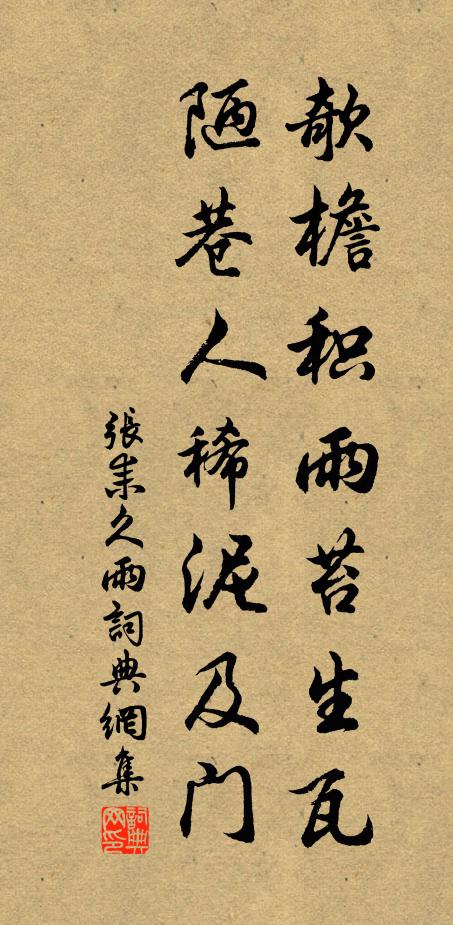 欹檐积雨苔生瓦
陋巷人稀泥及门
張耒久雨詞典網集
詞典
网印